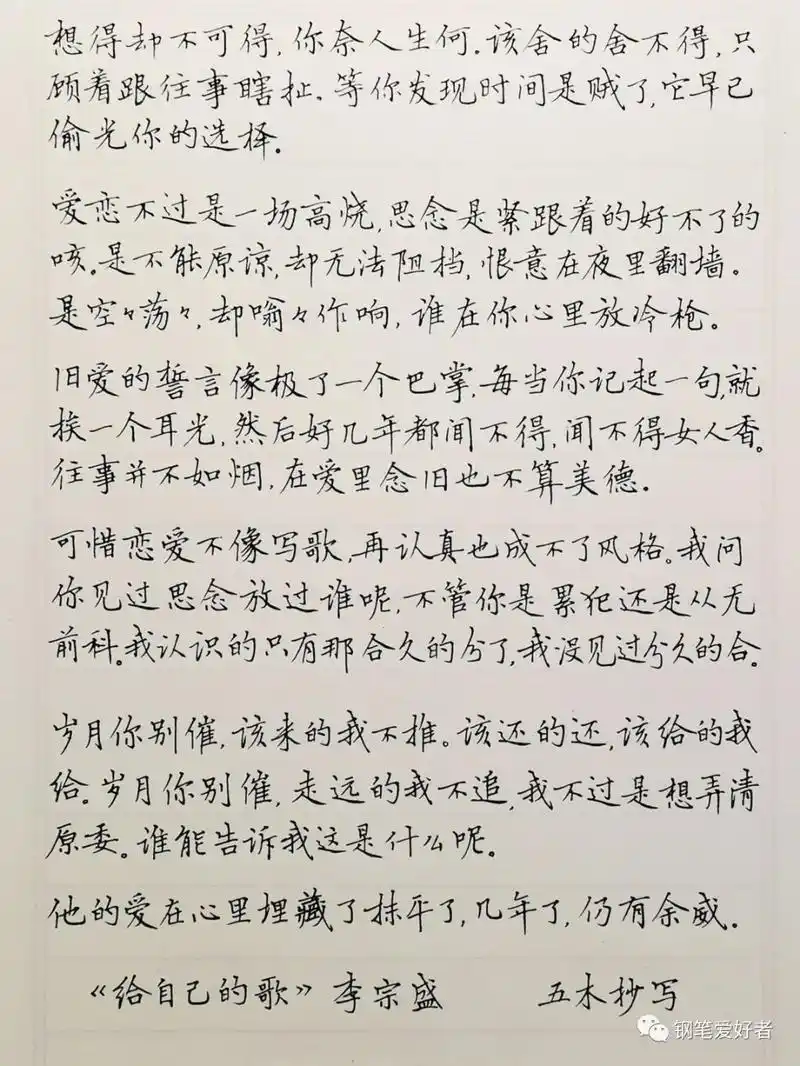 想得却不可得,你奈人生何.该舍的舍不得,只
顾着跟往事瞎扯.等你发现时间是贼了,它早已
偷光你的选择.
爱恋不过是一场高烧,思念是紧跟着的好不了的
咳。是不能原谅,却无法阻挡,恨意在夜里翻墙。
是空々荡々,却嗡々作响,谁在你心里放冷枪。
旧爱的誓言像极了一个巴掌,每当你记起一句,就
挨一个耳光,然后好几年都闻不得,闻不得女人香。
往事并不如烟,在爱里念旧也不算美德.
可惜恋爱不像写歌,再认真也成不了风格。我问
你见过思念放过谁呢,不管你是累犯还是从无
前科。我认识的只有那合久的分了,我没见过分久的合。
岁月你别催,该来的我不推。该还的还,该给的我
给.岁月你别催,走远的我不追,我不过是想弄清
原委。谁能告诉我这是什么呢。
他的爱在心里埋藏了抹平了,几年了,仍有余威.
《给自己的歌》李宗盛 五木抄写
钢笔爱好者